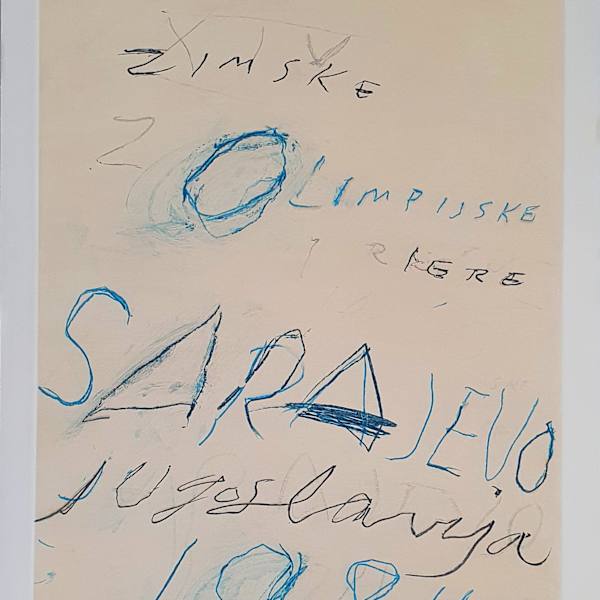 ZIMSKE
OLIMPIJSKE
SARAJEVO
Jugoslavija